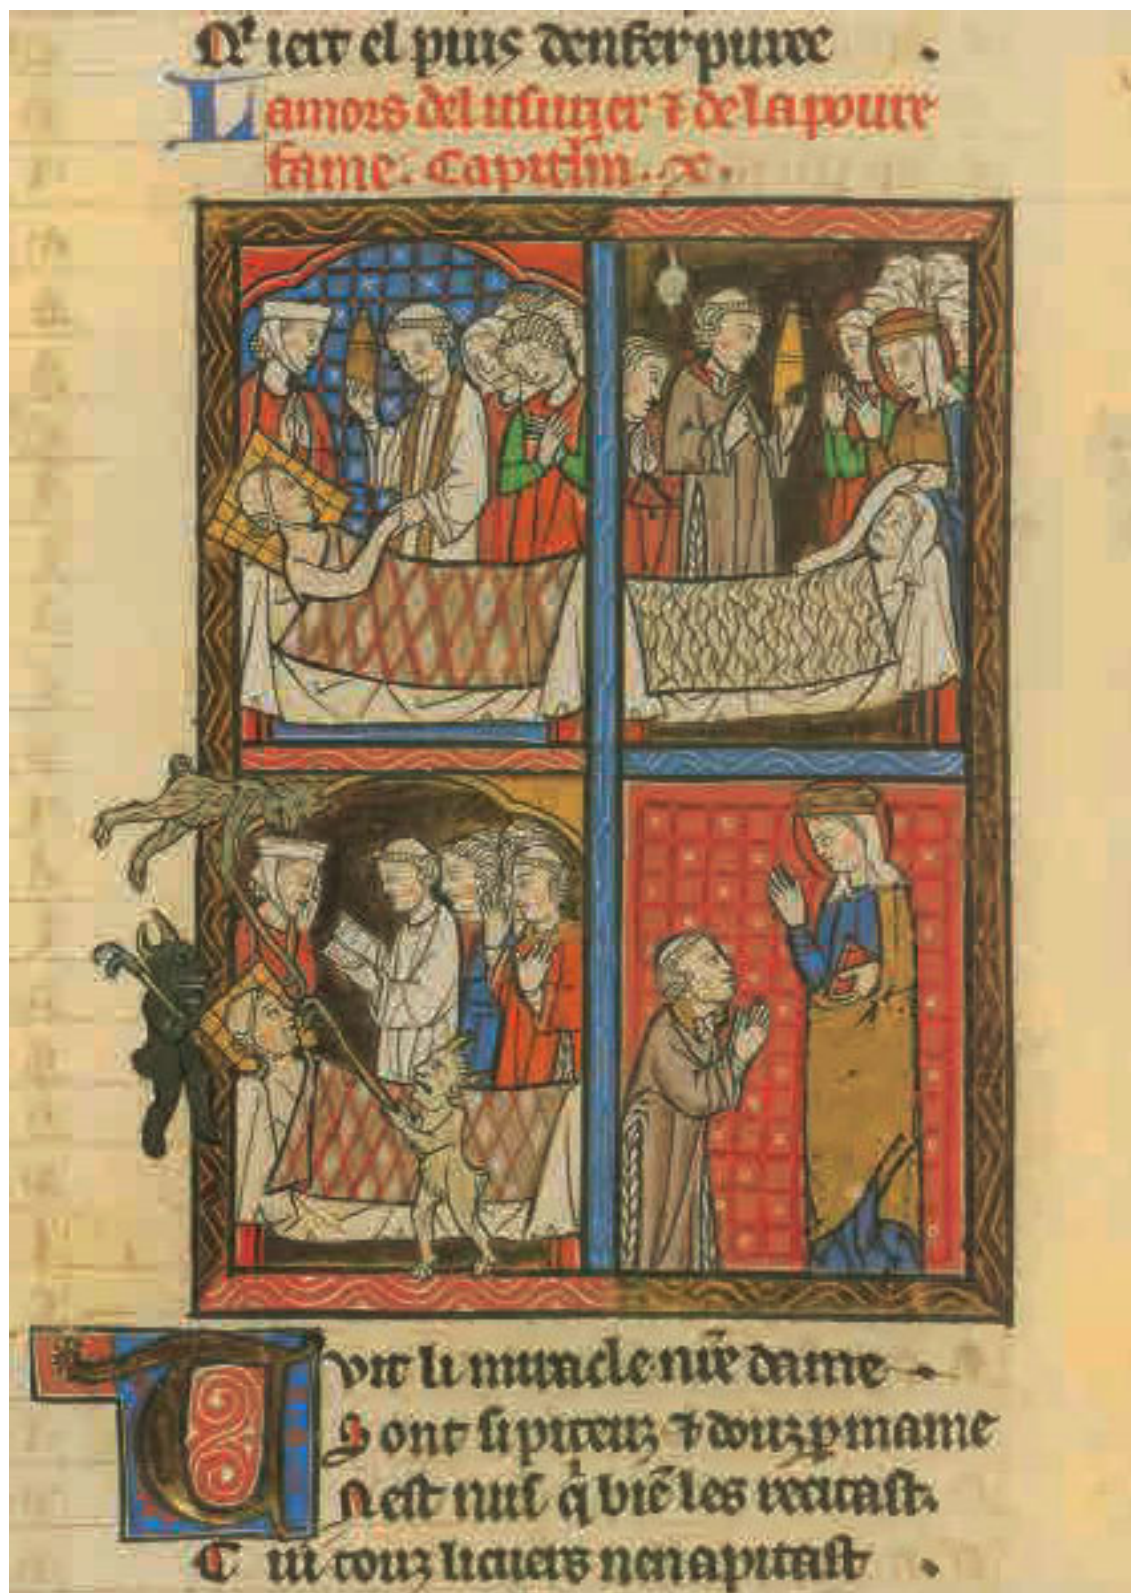 iert el puis denfer puree .
La mors del usurier ⁊ de la poure
fame. Capitlm. .x.
Tuit li miracle nr̃e dame
Sont si piteuz ⁊ douz p mame
Nest nus q̇ biẽ les recitast.
Cui touz li cuers nen apitast .